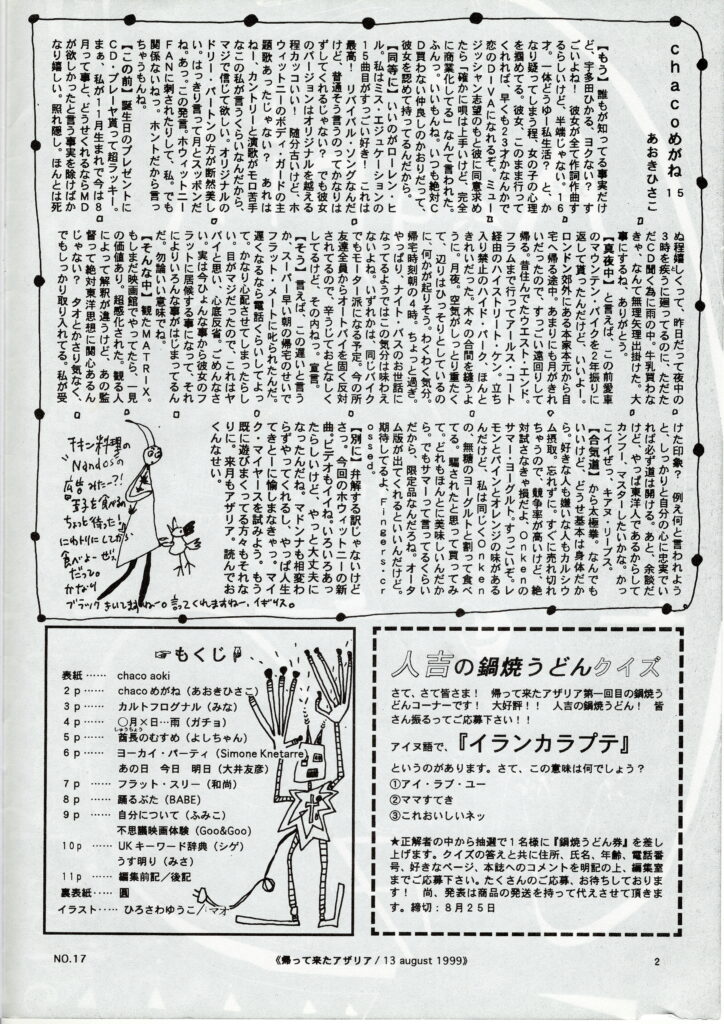 chacoめがね 15
あおきひさこ
【もう】誰もが知ってる事実だけ
ど、宇多田ひかる、ヨカない？　す
ごいよね！　彼女が全て作詞作曲す
るらしいけど、半端じゃない。16
才。一体どうゆー私生活？　と、か
なり疑ってしまう程、女の子の心理
を掴めてる。彼女、このまま行って
くれれば、早くも23才かなんかで
恋のDIVAになれるぞと、ミュー
ジッシャン志望のもと彼に同意求め
たら「確かに唄は上手いけど、完全
に商業化してる」なんて言われた。
ふんっ。いいもんね。いつも絶対C
D買わない仲良しのかおりだって、
彼女を認めて持ってるんだから。
【同等に】いいのがローレン・ヒ
ル。私はミス・エジュケーションの
15曲目がすっごい好き！　これは
最高！　リバイバル・ソングなんだ
けど、普通そう言うのってかなりは
ずしてくれるじゃない？　でも彼女
のバージョンはオリジナルを越える
程カッコいい！　随分古いけど、ホ
ウィットニーのボディ・ガードの主
題歌あったじゃない？　あれは
ねー、カントリーと演歌がモロ苦手
なこの私が言うくらいなんだから、
マジで信じて欲しい。オリジナルの
ドリー・パートンの方が断然美し
い。はっきり言って月とスッポンだ
ね。あっ。この発言。ホウィットニー
FANに刺されたりして、私。でも
関係ないねっ。ホントだから言っ
ちゃうもんね。
【この前】誕生日のプレゼントに
CD・プレーヤ貰って超ラッキー。
まぁ、私が11月生まれで今は8
月って事と、どうせくれるならMD
が欲しかったと言う事実を除けばか
なり嬉しい。照れ隠し。ほんとは死
ぬ程嬉しくって、昨日だって夜中の
3時を疾うに廻ってるのに、ただた
だCD聞く為に雨の中。牛乳買わな
きゃ、なんて無理矢理出掛けた。大
事にするね、ありがとう。
【真夜中】と言えば、この前愛車
のマウンテン・バイクを2年振りに
返して貰ったんだけど、いいよー。
ロンドン郊外にある本家本元から自
宅へ帰る途中、あまりにも月がきれ
いだったので、すっごい遠回りして
帰る。昔住んでたウエスト・エンド、
フラムまで行ってアールス・コート
経由のハイストリート・ケン。立ち
入り禁止のハイド・パーク、ほんと
きれいだった。木々の合間を縫うよ
うに、月夜。空気がしっとり重たく
て、辺りはひっそりとしているの
に、何かが起りそう。わくわく気分。
帰宅時刻朝の4時。ちょっと過ぎ。
やっぱり、ナイト・バスのお世話に
なってるようではこの気分は味わえ
ないよね。いずれかは、同じバイク
でもモーター派になる予定。今の所
友達全員からオートバイを固く反対
されてるので、辛うじておとなしく
してるけど、その内ねっ。宣言。
【そう】言えば、この遅いと言う
か、スーパー早い朝の帰宅のせいで
フラット・メートに叱られたんだ。
遅くなるなら電話くらいしてよっ
て。かなり心配させてしまったらし
い。目がマジだったので、これはヤ
バイと思い、心底反省。ごめんなさ
い。実は今ひょんな事から彼女のフ
ラットに居候する事になって、それ
によりいろんな事がはじまってるん
だ。勿論いい意味でね。
【そんな中】観たMATRIX。
もしまだ映画館でやってたら、一見
の価値あり。超感化された。観る人
によって解釈が違うけど、あの監
督って絶対東洋思想に関心あるん
じゃない？　タオとかなり気なく、
でもしっかり取り入れてる。私が受
けた印象？　例え何と言われよう
と、しっかりと自分の心に忠実でい
れば必ず道は開ける。あと、余談だ
けど、やっぱ東洋人であるからして
カンフー、マスターしたいかな。かっ
こイイぜっ、キアヌ・リーブス。
【合気道】から太極拳。なんでも
いいけど、どうせ基本は身体だか
ら、好きな人も嫌いな人もカルシウ
ム摂取。忘れずに。すぐに売れ切れ
ちゃうので、競争率が高いけど、絶
対試さなきゃ損だよ、Onkenの
サマー・ヨーグルト、すっごいぞ。レ
モンとパインとオレンジの味がある
んだけど、私は同じくOnken
の、無糖のヨーグルトと割って食べ
てる。騙されたと思って買ってみ
て、どれもほんとに美味しいんだか
ら。でもサマーって言ってるくらい
だから、限定品なんだろね。オータ
ム版が出てくるといいんだけど。
期待してるよ、Fingers, cr
ossed。
【別に】弁解する訳じゃないけど
さっ、今回のホウィットニーの新
曲。ビデオもイイね。いろいろあっ
たらしいけど、やっと大丈夫に
なったんだね。マドンナも相変わ
らずやってくれるし、やっぱ人生
てきとーに愉しまなきゃっ。マイ
ク・マイヤースを試みよう。もう
既に遊びまくってる方々もそれな
りに。来月もアザリア。読んでお
くんなせい。
チキン料理の
Nandosの
広告みたーっ？！
「玉子を食べるの
ちょっと待った
にわトリにしてから
食べよーぜ」
だって。
かなり
ブラックきいてますねー。言ってくれますねー、イギリス。
☞もくじ
表紙…… chaco aoki
2p…… chacoめがね（あおきひさこ）
3p…… カルトフログナル（みな）
4p…… ○月×日…雨（ガチョ）
しゅうちょう
5p…… 酋長のむすめ（よしちゃん）
6p…… ヨーカイ・パーティ（Simone Knetarre）
あの日　今日　明日（大井友彦）
7p…… フラット・スリー（和尚）
8p…… 踊るぶた（BABE）
9p…… 自分について（ふみこ）
不思議映画体験（Goo&Goo）
10p…… UKキーワード辞典（シゲ）
うす明り（みさ）
11p…… 編集前記／後記
裏表紙…… 圓
イラスト…… ひろさわゆうこ／マオ
人吉の鍋焼うどんクイズ
さて、さて皆さま！　帰って来たアザリア第一回目の鍋焼う
どんコーナーです！　大好評！！　人吉の鍋焼うどん！　皆
さん振るってご応募下さい！！
アイヌ語で、『イランカラプテ』
というのがあります。さて、この意味は何でしょう？
①アイ・ラブ・ユー
②ママすてき
③これおいしいネッ
★正解者の中から抽選で1名様に『鍋焼うどん券』を差し
上げます。クイズの答えと共に住所、氏名、年齢、電話番
号、好きなページ、本誌へのコメントを明記の上、編集室
までご応募下さい。たくさんのご応募、お待ちしておりま
す！　尚、発表は商品の発送を持って代えさせて頂きま
す。締切：8月25日
NO.17
《帰って来たアザリア / 13 august 1999》
2